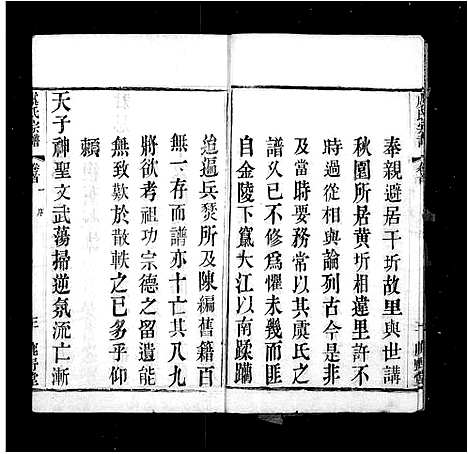 奉親避居干圻故里與世講
秋園所居黄圻相違里許不
時過從相與論列古今是非
及當時要務常以其虞氏之
譜乆已不修爲懼未幾而匪
自金陵下竄大江以南蹂躪
迨遍兵燹所及陳編舊籍百
無一存而譜亦十亡其八九
將欲考祖功宗德之留遺能
無致歎於散軼之已多乎仰
賴
天子神聖文武蕩掃逆氛流亡漸
虞氏宗譜
卷首
一
序